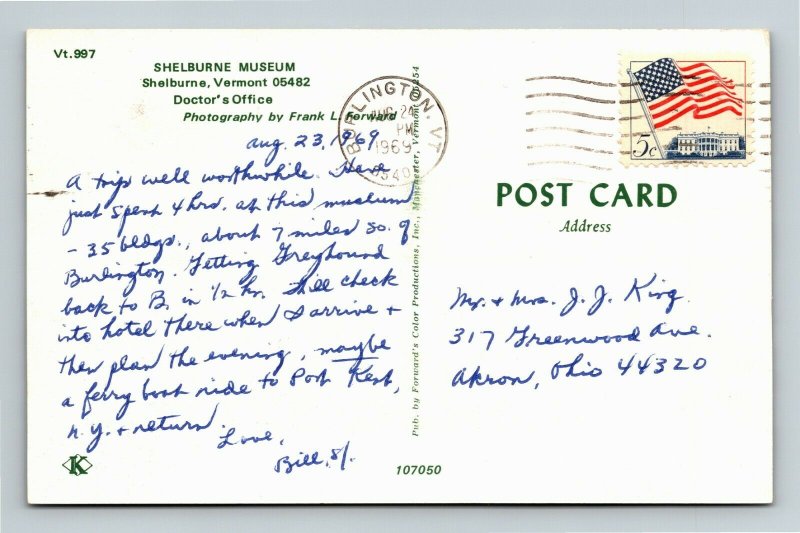 Vt.997
SHELBURNE MUSEUM
Shelburne, Vermont 05482
Doctor's Office
Photography by Frank L. Forward
aug. 23, 1969
A trip well worthwhile. Have
just spent 4 hrs. at this museum
- 35 bldgs., about 7 miles so. of
Burlington. Getting Greyhound
back to B. in 1/2 hr. I'll check
into hotel there when I arrive +
then plan the evening, maybe
a ferry boat ride to Port Kent,
N.Y. + return.
Love,
Bill, S/.
K
Pub. by Forward's Color Productions, Inc., Manchester, Vermont 05254
107050
BURLINGTON, VT
AUG 24
PM
1969
5c
POST CARD
Address
Mr. + Mrs. J. J. King
317 Greenwood Ave.
Akron, Ohio 44320